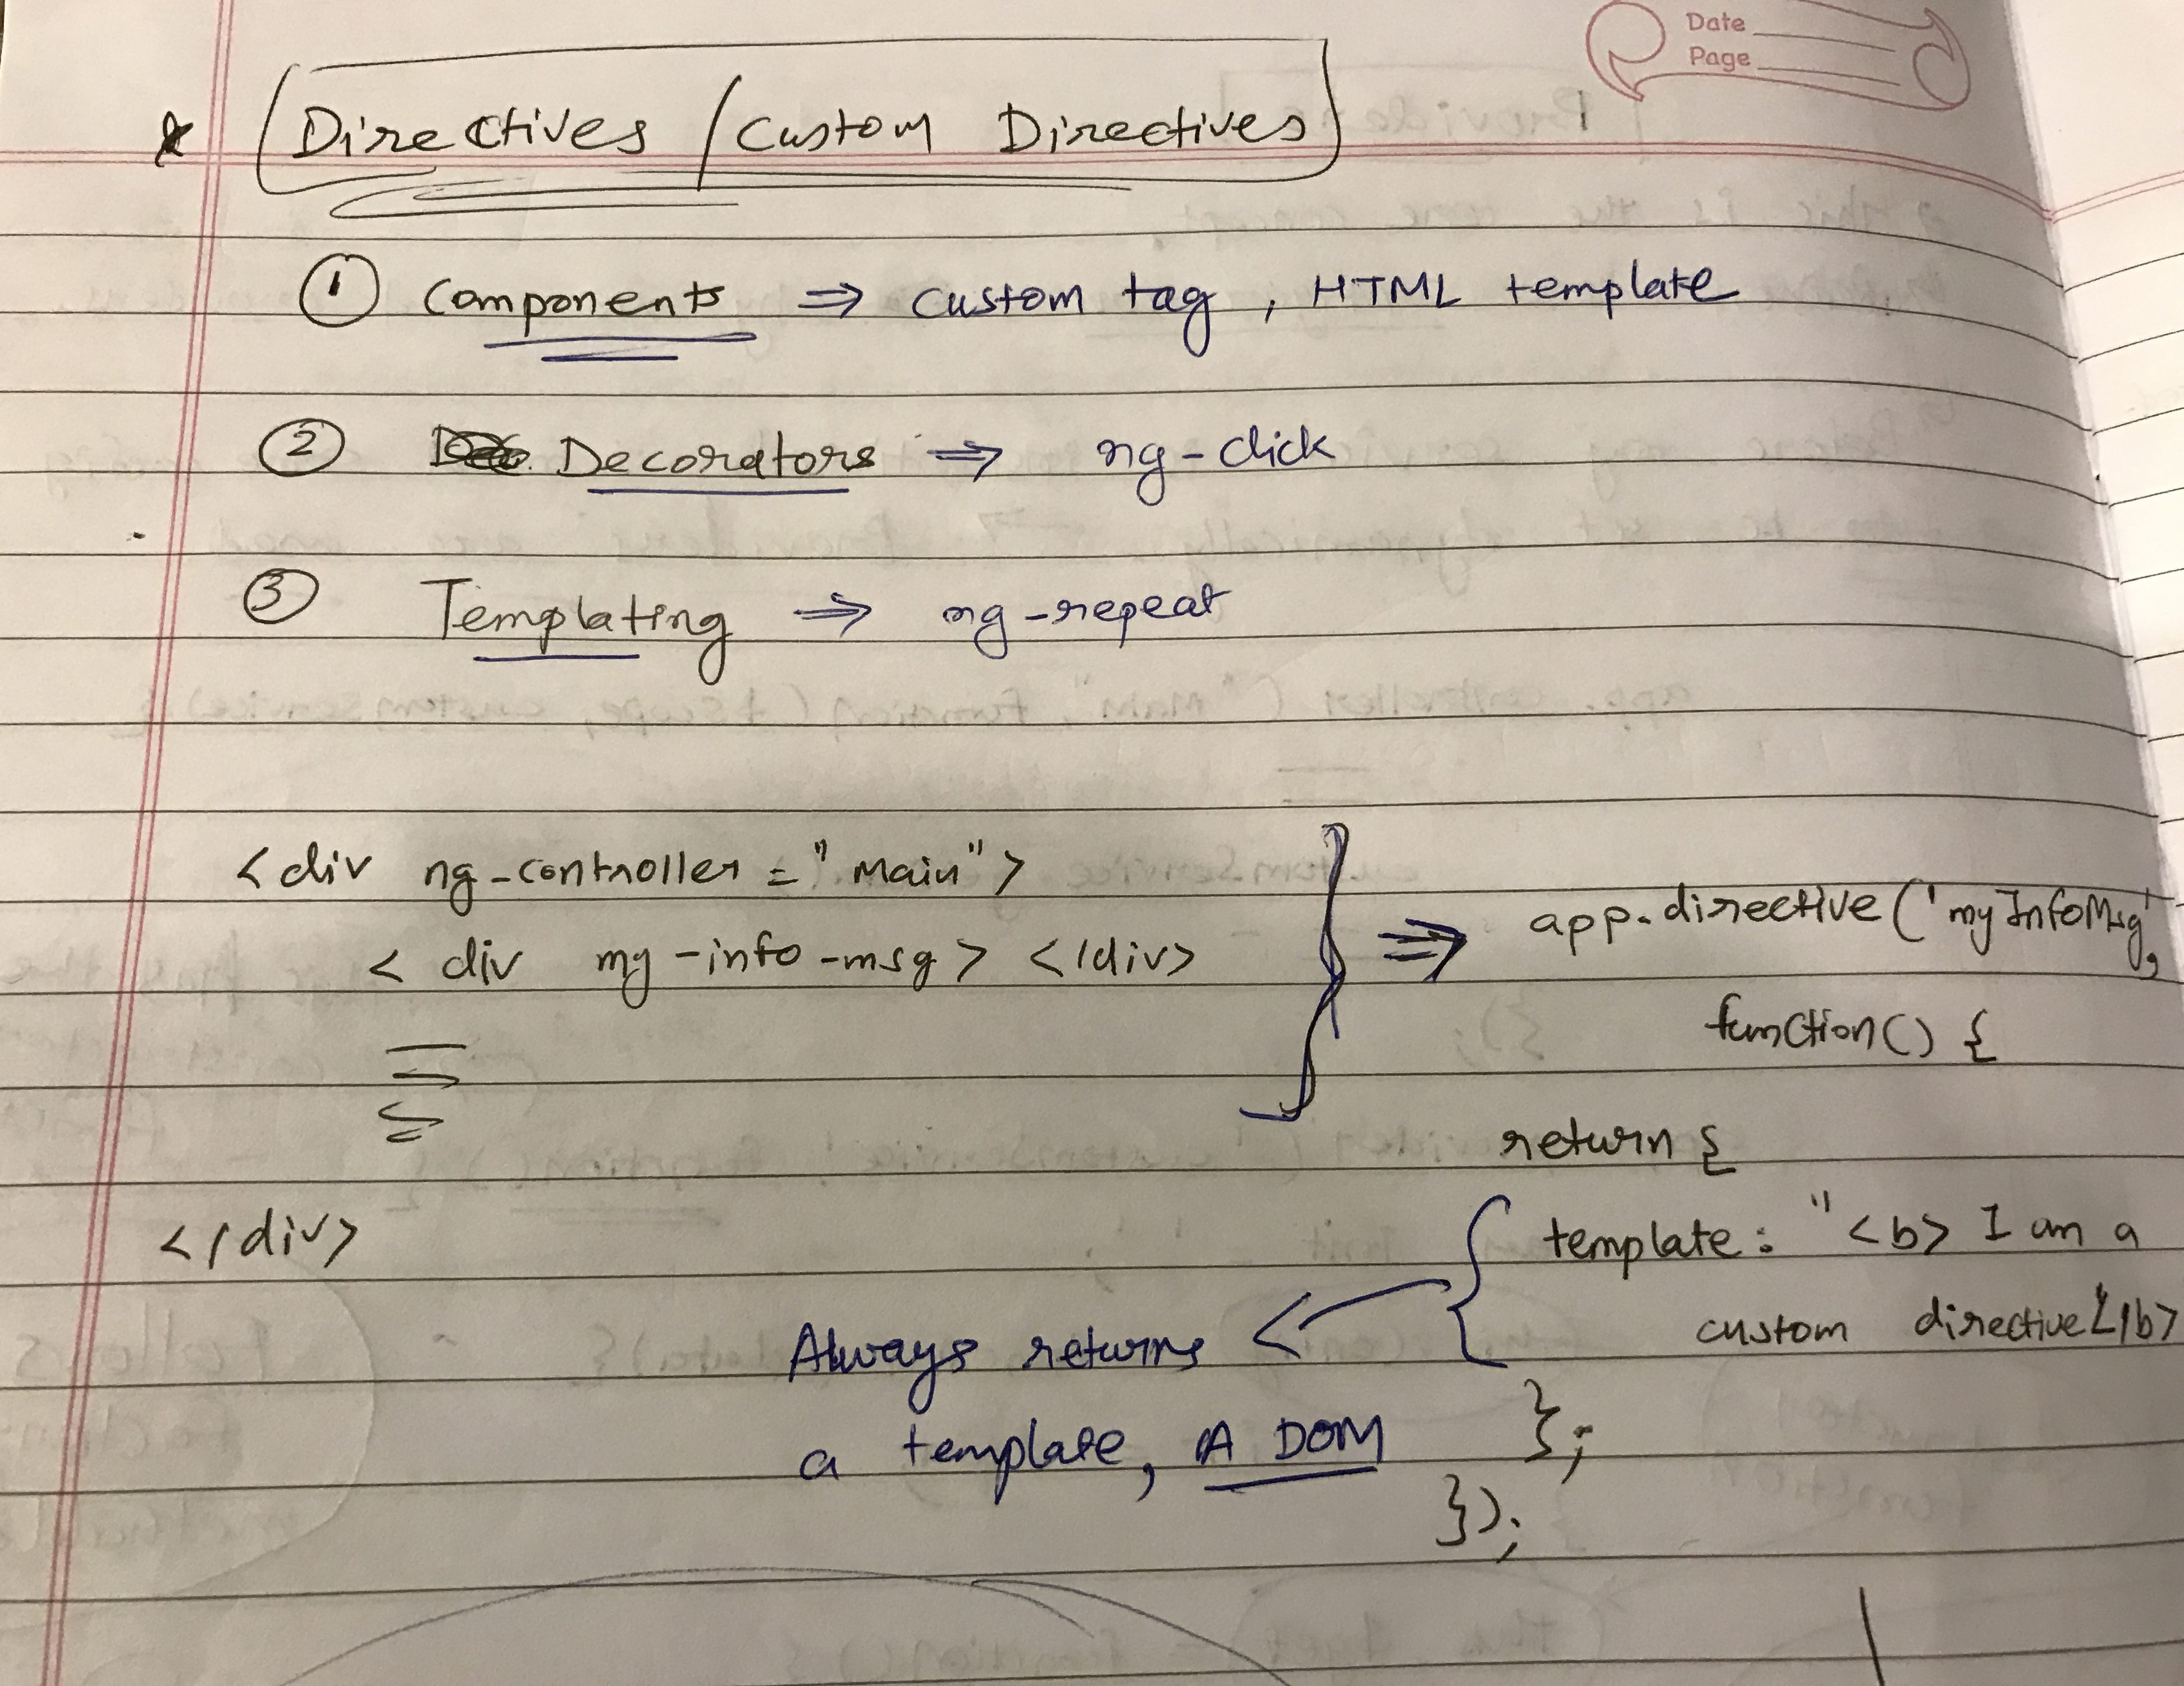 Date
Page
Directives / Custom Directives
1 Components ⇒ custom tag, HTML template
2 Decorators ⇒ ng-click
3 Templating ⇒ ng-repeat
<div ng-controller="Main">
<div my-info-msg> </div>
</div>
⇒ app.directive('myInfoMsg',
function() {
return {
template: "<b> I am a
custom directive</b>
};
});
Always returns
a template, A DOM